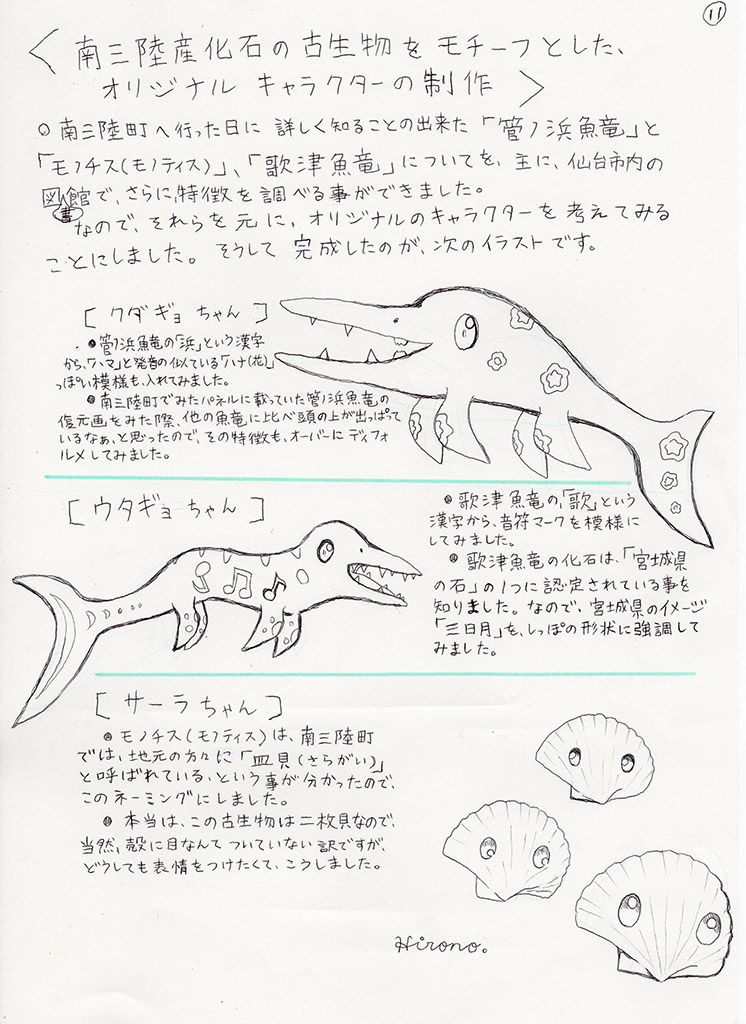 11
〈南三陸産化石の古生物をモチーフとした、
オリジナル キャラクターの制作〉
○ 南三陸町へ行った日に 詳しく知ることの出来た「管ノ浜魚竜」と
「モノチス(モノティス)」、「歌津魚竜」についてを、主に、仙台市内の
図書館で、さらに特徴を調べる事ができました。
なので、それらを元に、オリジナルのキャラクターを考えてみる
ことにしました。そうして 完成したのが、次のイラストです。
[クダギョちゃん]
● 管ノ浜魚竜の「浜」という漢字
から、「ハマ」と発音の似ている「ハナ(花)」
っぽい模様も、入れてみました。
● 南三陸町でみたパネルに載っていた管ノ浜魚竜の
復元画をみた際、他の魚竜に比べ頭の上が出っぱって
いるなぁ、と思ったので、その特徴も、オーバーにディフォ
ルメしてみました。
[ウタギョちゃん]
● 歌津魚竜の「歌」という
漢字から、音符マークを模様に
してみました。
● 歌津魚竜の化石は、「宮城県
の石」の1つに認定されている事を
知りました。なので、宮城県のイメージ
「三日月」を、しっぽの形状に強調して
みました。
[サーラちゃん]
● モノチス(モノティス)は、南三陸町
では、地元の方々に「皿貝(さらがい)」
と呼ばれている、という事が分かったので、
このネーミングにしました。
● 本当は、この古生物は二枚貝なので、
当然、殻に目なんてついていない訳ですが、
どうしても表情をつけたくて、こうしました。
Hirono.